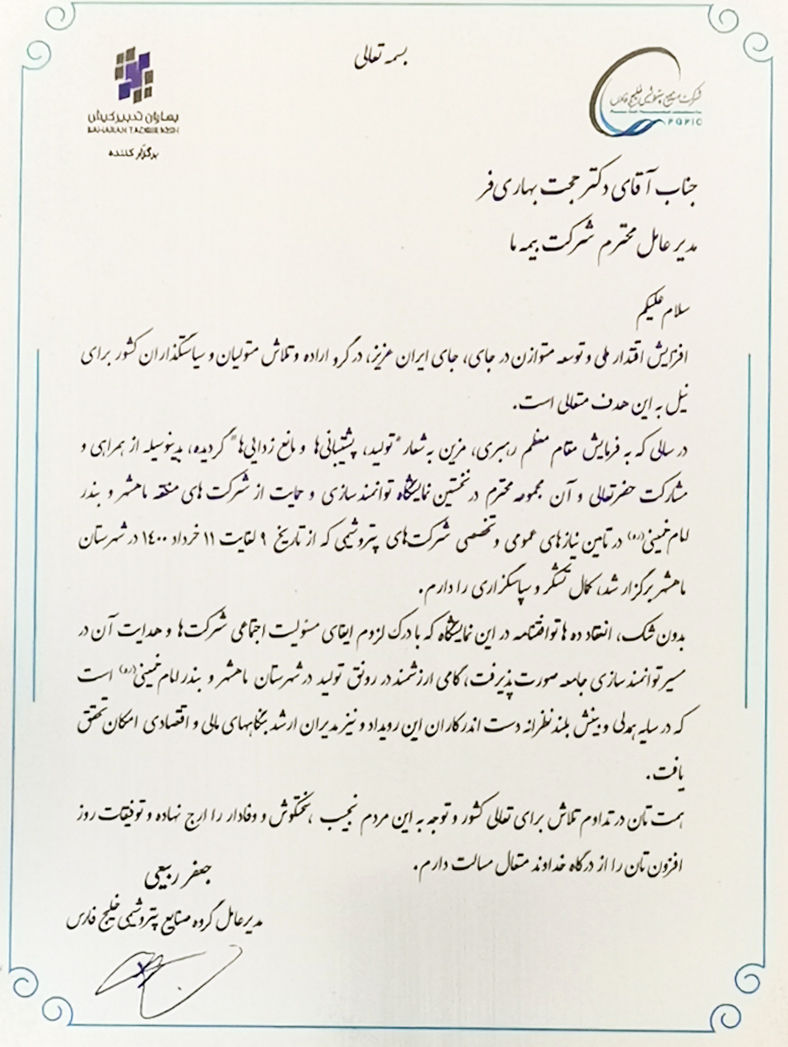 بسمه تعالی
شرکت صنایع پتروشیمی خلیج فارس
PGPIC
بهاران تدبیر کیش
BAHARAN TADBIR KISH
برگزار کننده
جناب آقای دکتر حجت بهاری‌فر
مدیر عامل محترم شرکت بیمه ما
سلام علیکم
افزایش اقتدار ملی و توسعه متوازن در جای، جای ایران عزیز، در گرو اراده و تلاش متولیان و سیاستگذاران کشور برای
نیل به این هدف متعالی است.
در سالی که به فرمایش مقام معظم رهبری، مزین به شعار "تولید، پشتیبانی‌ها و مانع زدایی‌ها" گردیده، بدینوسیله از همراهی و
مشارکت حضرتعالی و آن مجموعه محترم در نخستین نمایشگاه توانمندسازی و حمایت از شرکت های منطقه ماهشهر و بندر
امام خمینی(ره) در تامین نیازهای عمومی و تخصصی شرکت‌های پتروشیمی که از تاریخ ۹ لغایت ۱۱ خرداد ۱۴۰۰ در شهرستان
ماهشهر برگزار شد، کمال تشکر و سپاسگزاری را دارم.
بدون شک، انعقاد ده ها توافقنامه در این نمایشگاه که با درک لزوم ایفای مسئولیت اجتماعی شرکت‌ها و هدایت آن در
مسیر توانمند سازی جامعه صورت پذیرفت، گامی ارزشمند در رونق تولید در شهرستان ماهشهر و بندر امام خمینی(ره) است
که در سایه همدلی و بینش بلندنظرانه دست اندرکاران این رویداد و نیز مدیران ارشد بنگاههای مالی و اقتصادی امکان تحقق
یافت.
همت تان در تداوم تلاش برای تعالی کشور و توجه به این مردم نجیب ، سختکوش و وفادار را ارج نهاده و توفیقات روز
افزون تان را از درگاه خداوند متعال مسالت دارم.
جعفر ربیعی
مدیرعامل گروه صنایع پتروشیمی خلیج فارس